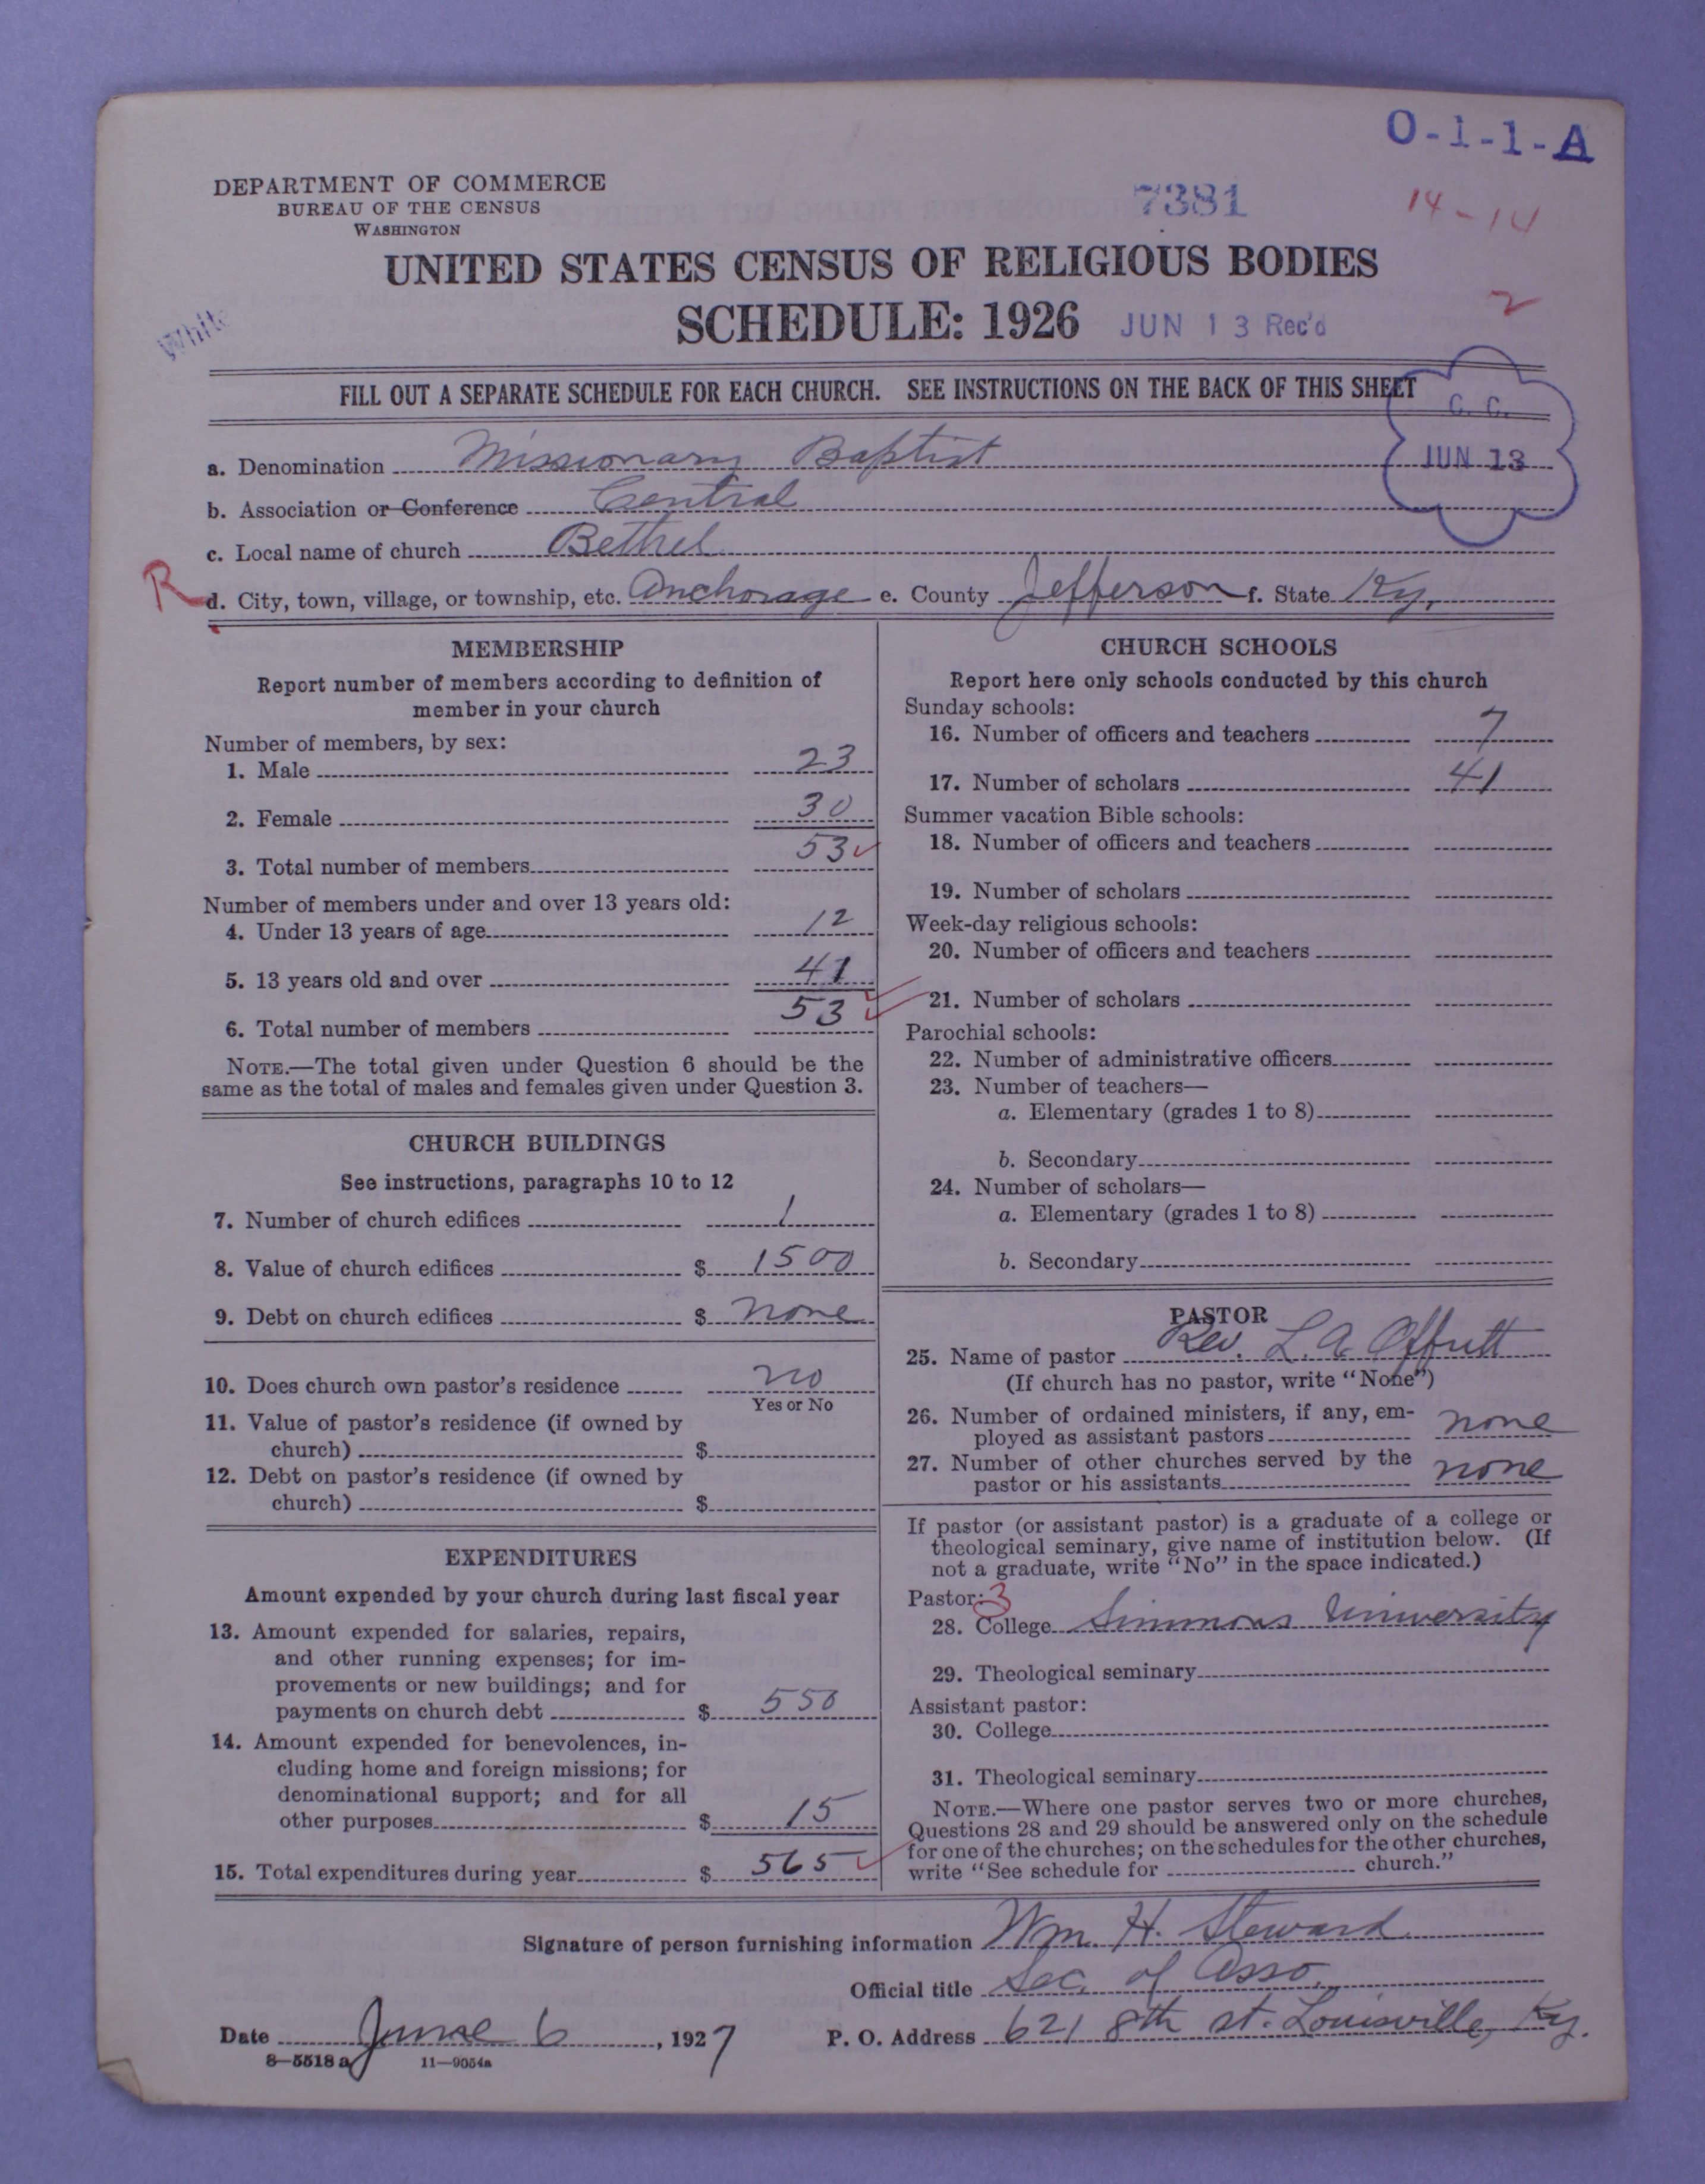 O-1-1-A
DEPARTMENT OF COMMERCE
BUREAU OF THE CENSUS
WASHINGTON
7381
14-14
UNITED STATES CENSUS OF RELIGIOUS BODIES
2
SCHEDULE: 1926 JUN 13 Rec'd
White
FILL OUT A SEPARATE SCHEDULE FOR EACH CHURCH. SEE INSTRUCTIONS ON THE BACK OF THIS SHEET
C. C.
JUN 13
a. Denomination Missionary Baptist
b. Association or Conference Central
c. Local name of church Bethel
R
d. City, town, village, or township, etc. Anchorage e. County Jefferson f. State Ky.
MEMBERSHIP
Report number of members according to definition of
member in your church
Number of members, by sex:
1. Male 23
2. Female 30
3. Total number of members 53
Number of members under and over 13 years old:
4. Under 13 years of age 12
5. 13 years old and over 41
6. Total number of members 53
NOTE.—The total given under Question 6 should be the
same as the total of males and females given under Question 3.
CHURCH BUILDINGS
See instructions, paragraphs 10 to 12
7. Number of church edifices 1
8. Value of church edifices $ 1500
9. Debt on church edifices $ none
10. Does church own pastor's residence no
Yes or No
11. Value of pastor's residence (if owned by
church) $
12. Debt on pastor's residence (if owned by
church) $
EXPENDITURES
Amount expended by your church during last fiscal year
13. Amount expended for salaries, repairs,
and other running expenses; for im-
provements or new buildings; and for
payments on church debt $ 550
14. Amount expended for benevolences, in-
cluding home and foreign missions; for
denominational support; and for all
other purposes $ 15
15. Total expenditures during year $ 565
CHURCH SCHOOLS
Report here only schools conducted by this church
Sunday schools:
16. Number of officers and teachers 7
17. Number of scholars 41
Summer vacation Bible schools:
18. Number of officers and teachers
19. Number of scholars
Week-day religious schools:
20. Number of officers and teachers
21. Number of scholars
Parochial schools:
22. Number of administrative officers
23. Number of teachers—
a. Elementary (grades 1 to 8)
b. Secondary
24. Number of scholars—
a. Elementary (grades 1 to 8)
b. Secondary
PASTOR
25. Name of pastor Rev. L. A. Offutt
(If church has no pastor, write "None")
26. Number of ordained ministers, if any, em-
ployed as assistant pastors none
27. Number of other churches served by the
pastor or his assistants none
If pastor (or assistant pastor) is a graduate of a college or
theological seminary, give name of institution below. (If
not a graduate, write "No" in the space indicated.)
Pastor: 3
28. College Simmons University
29. Theological seminary
Assistant pastor:
30. College
31. Theological seminary
NOTE.—Where one pastor serves two or more churches,
Questions 28 and 29 should be answered only on the schedule
for one of the churches; on the schedules for the other churches,
write "See schedule for church."
Signature of person furnishing information Wm. H. Steward
Official title Sec. of Asso.
Date June 6, 1927 P. O. Address 621 8th st. Louisville, Ky.
8—5518 a 11—9054a